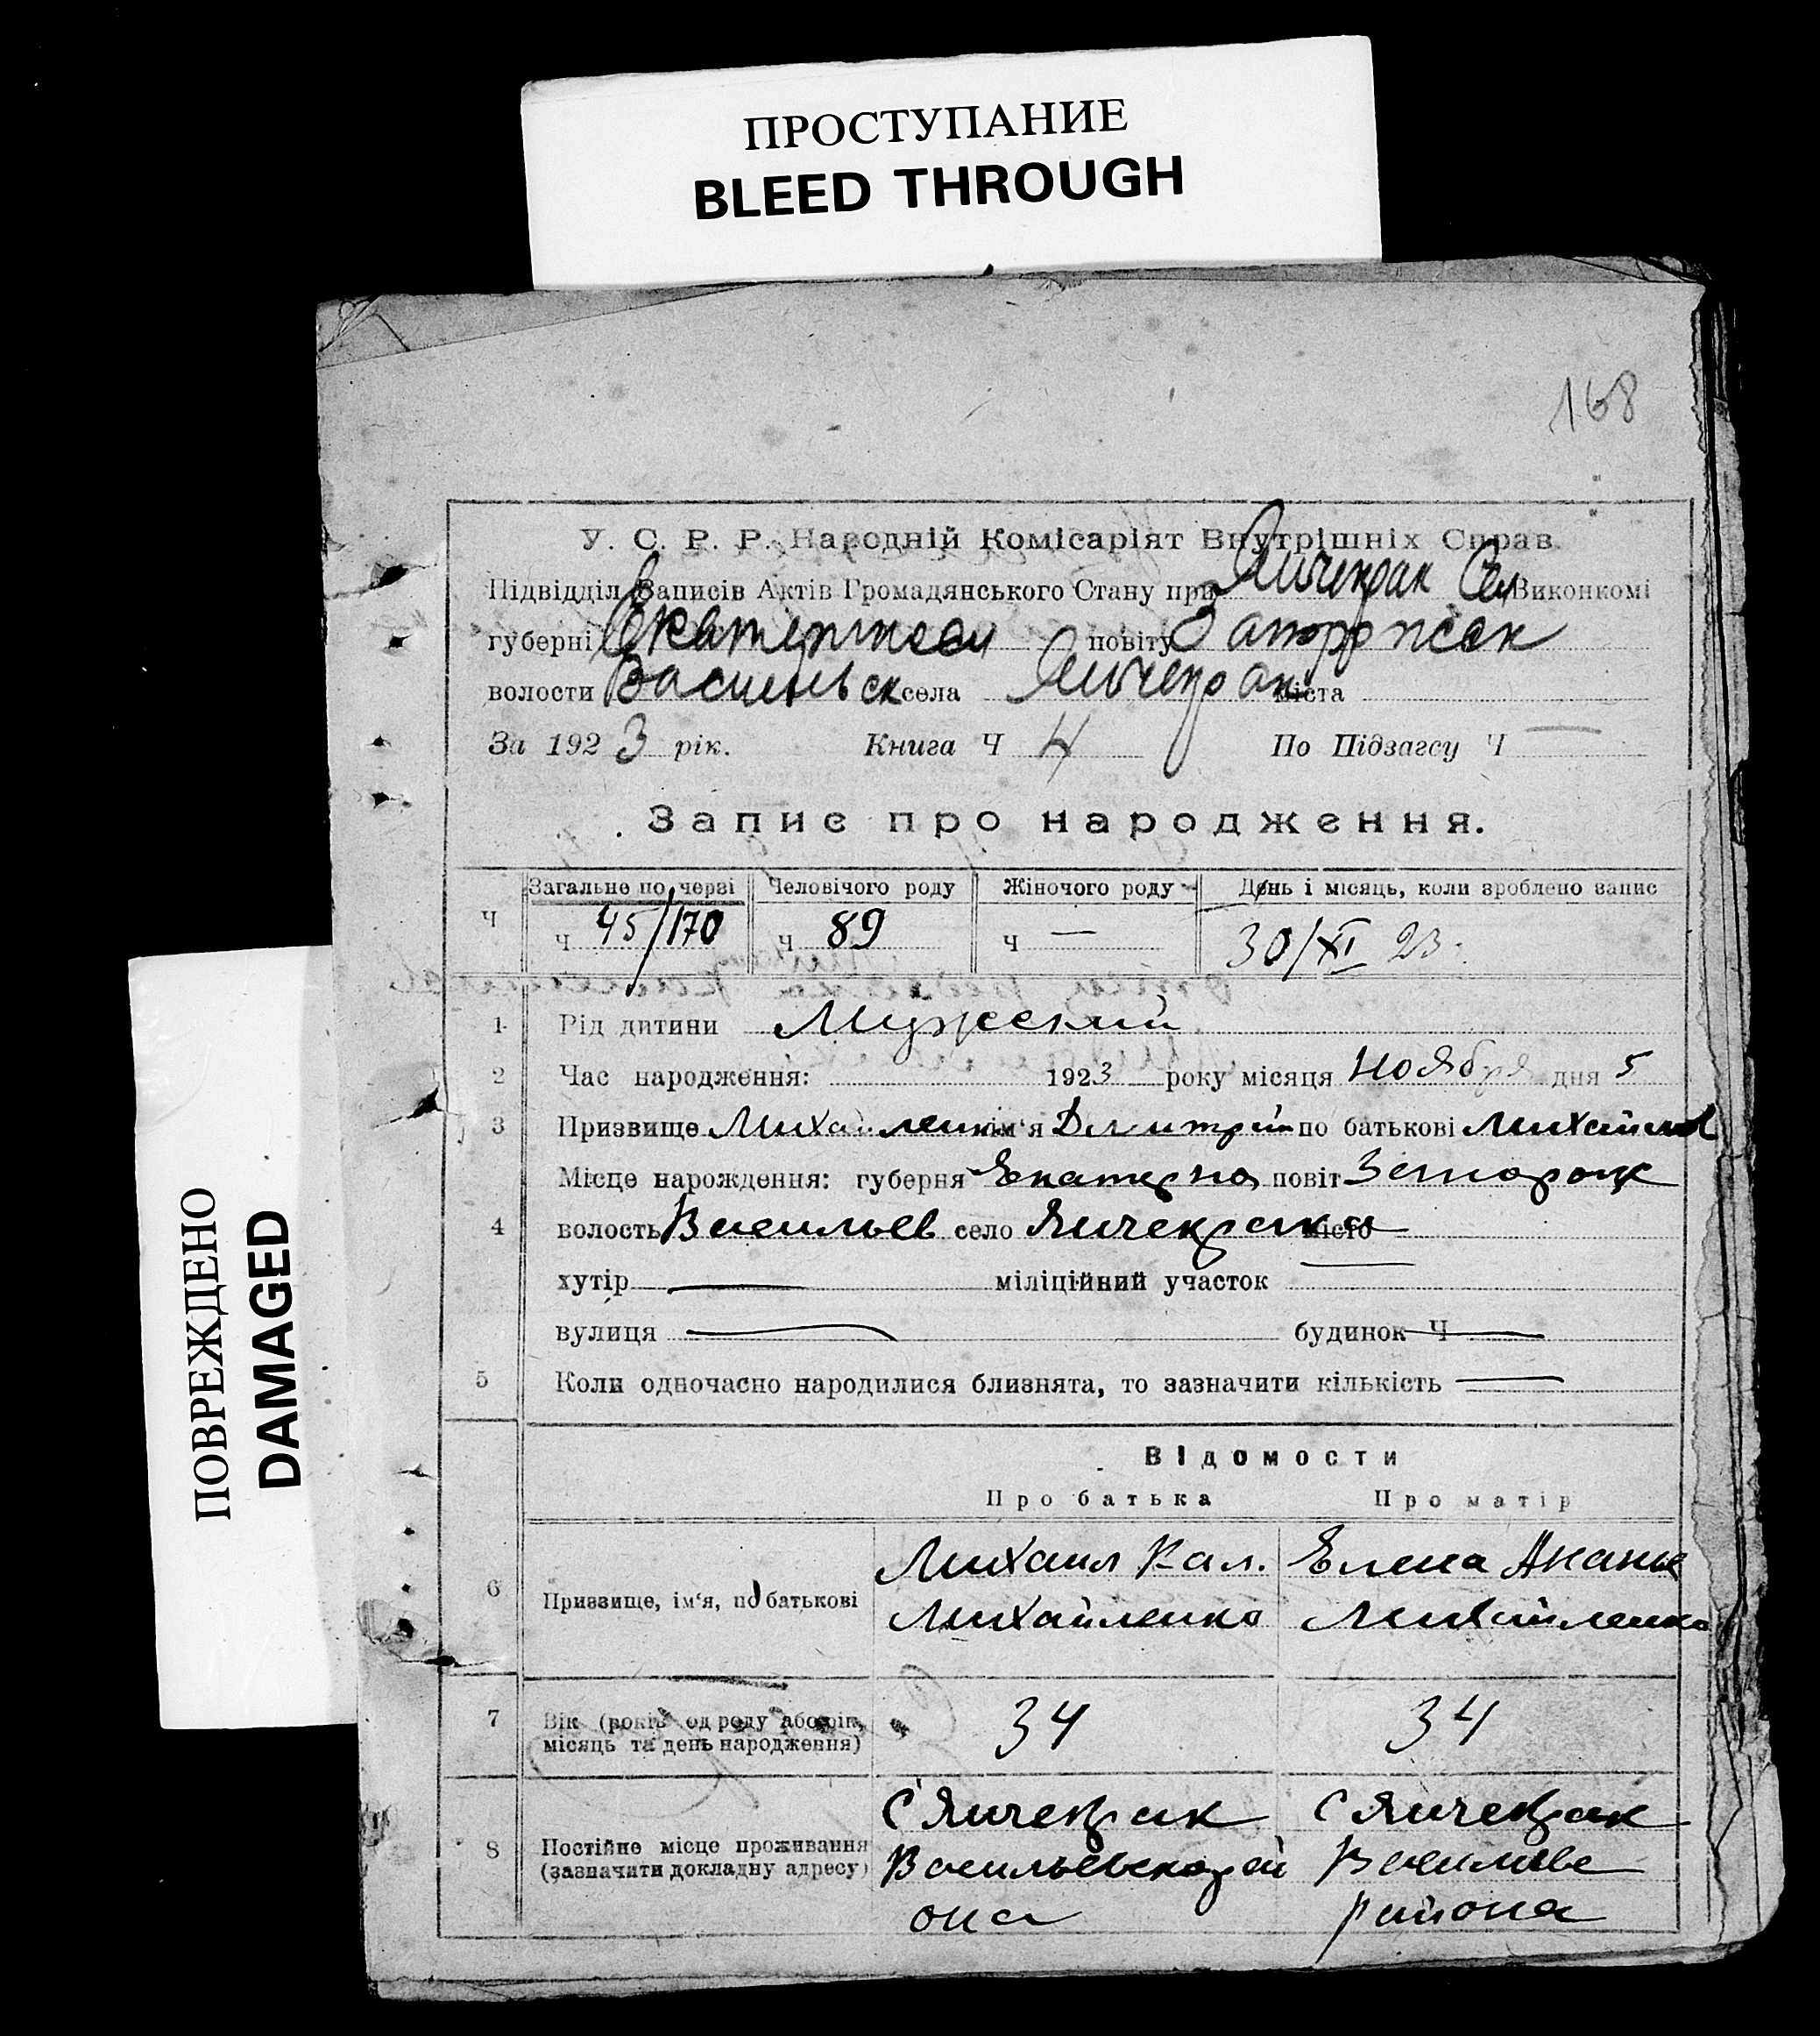 ПРОСТУПАНИЕ
BLEED THROUGH
ПОВРЕЖДЕНО
DAMAGED
168
У. С. Р. Р. Народній Комісаріят Внутрішніх Справ.
Підвідділ Записів Актів Громадянського Стану при Янчекрак Сел Виконкомі
губерні Екатериносл повіту Запорожск
волости Васильевск села Янчекрак міста —
За 1923 рік. Книга Ч 4 По Підзагсу Ч —
Запис про народження.
Загальне по черзі Человічого роду Жіночого роду День і місяць, коли зроблено запис
Ч ч 45/170 ч 89 ч — 30/XI 23.
1 Рід дитини Мужеский
2 Час народження: 1923 року місяця Ноября дня 5
3 Призвище Михайленко ім'я Дмитрий по батькові Михайлов
Місце нарождення: губерня Екатерино повіт Запорож
4 волость Васильев село Янчекрак місто —
хутір — міліційний участок —
вулиця — будинок Ч —
5 Коли одночасно народилися близнята, то зазначити кількість —
Відомости
Про батька Про матір
6 Призвище, ім'я, по батькові
Михаил Кал. Михайленко
Елена Анань Михайленко
7 Вік (років од роду або рік, місяць та день народження) 34 34
8 Постійне місце проживання (зазначити докладну адресу)
с Янчекрак Васильевског рай она
с Янчекрак Василиеве района